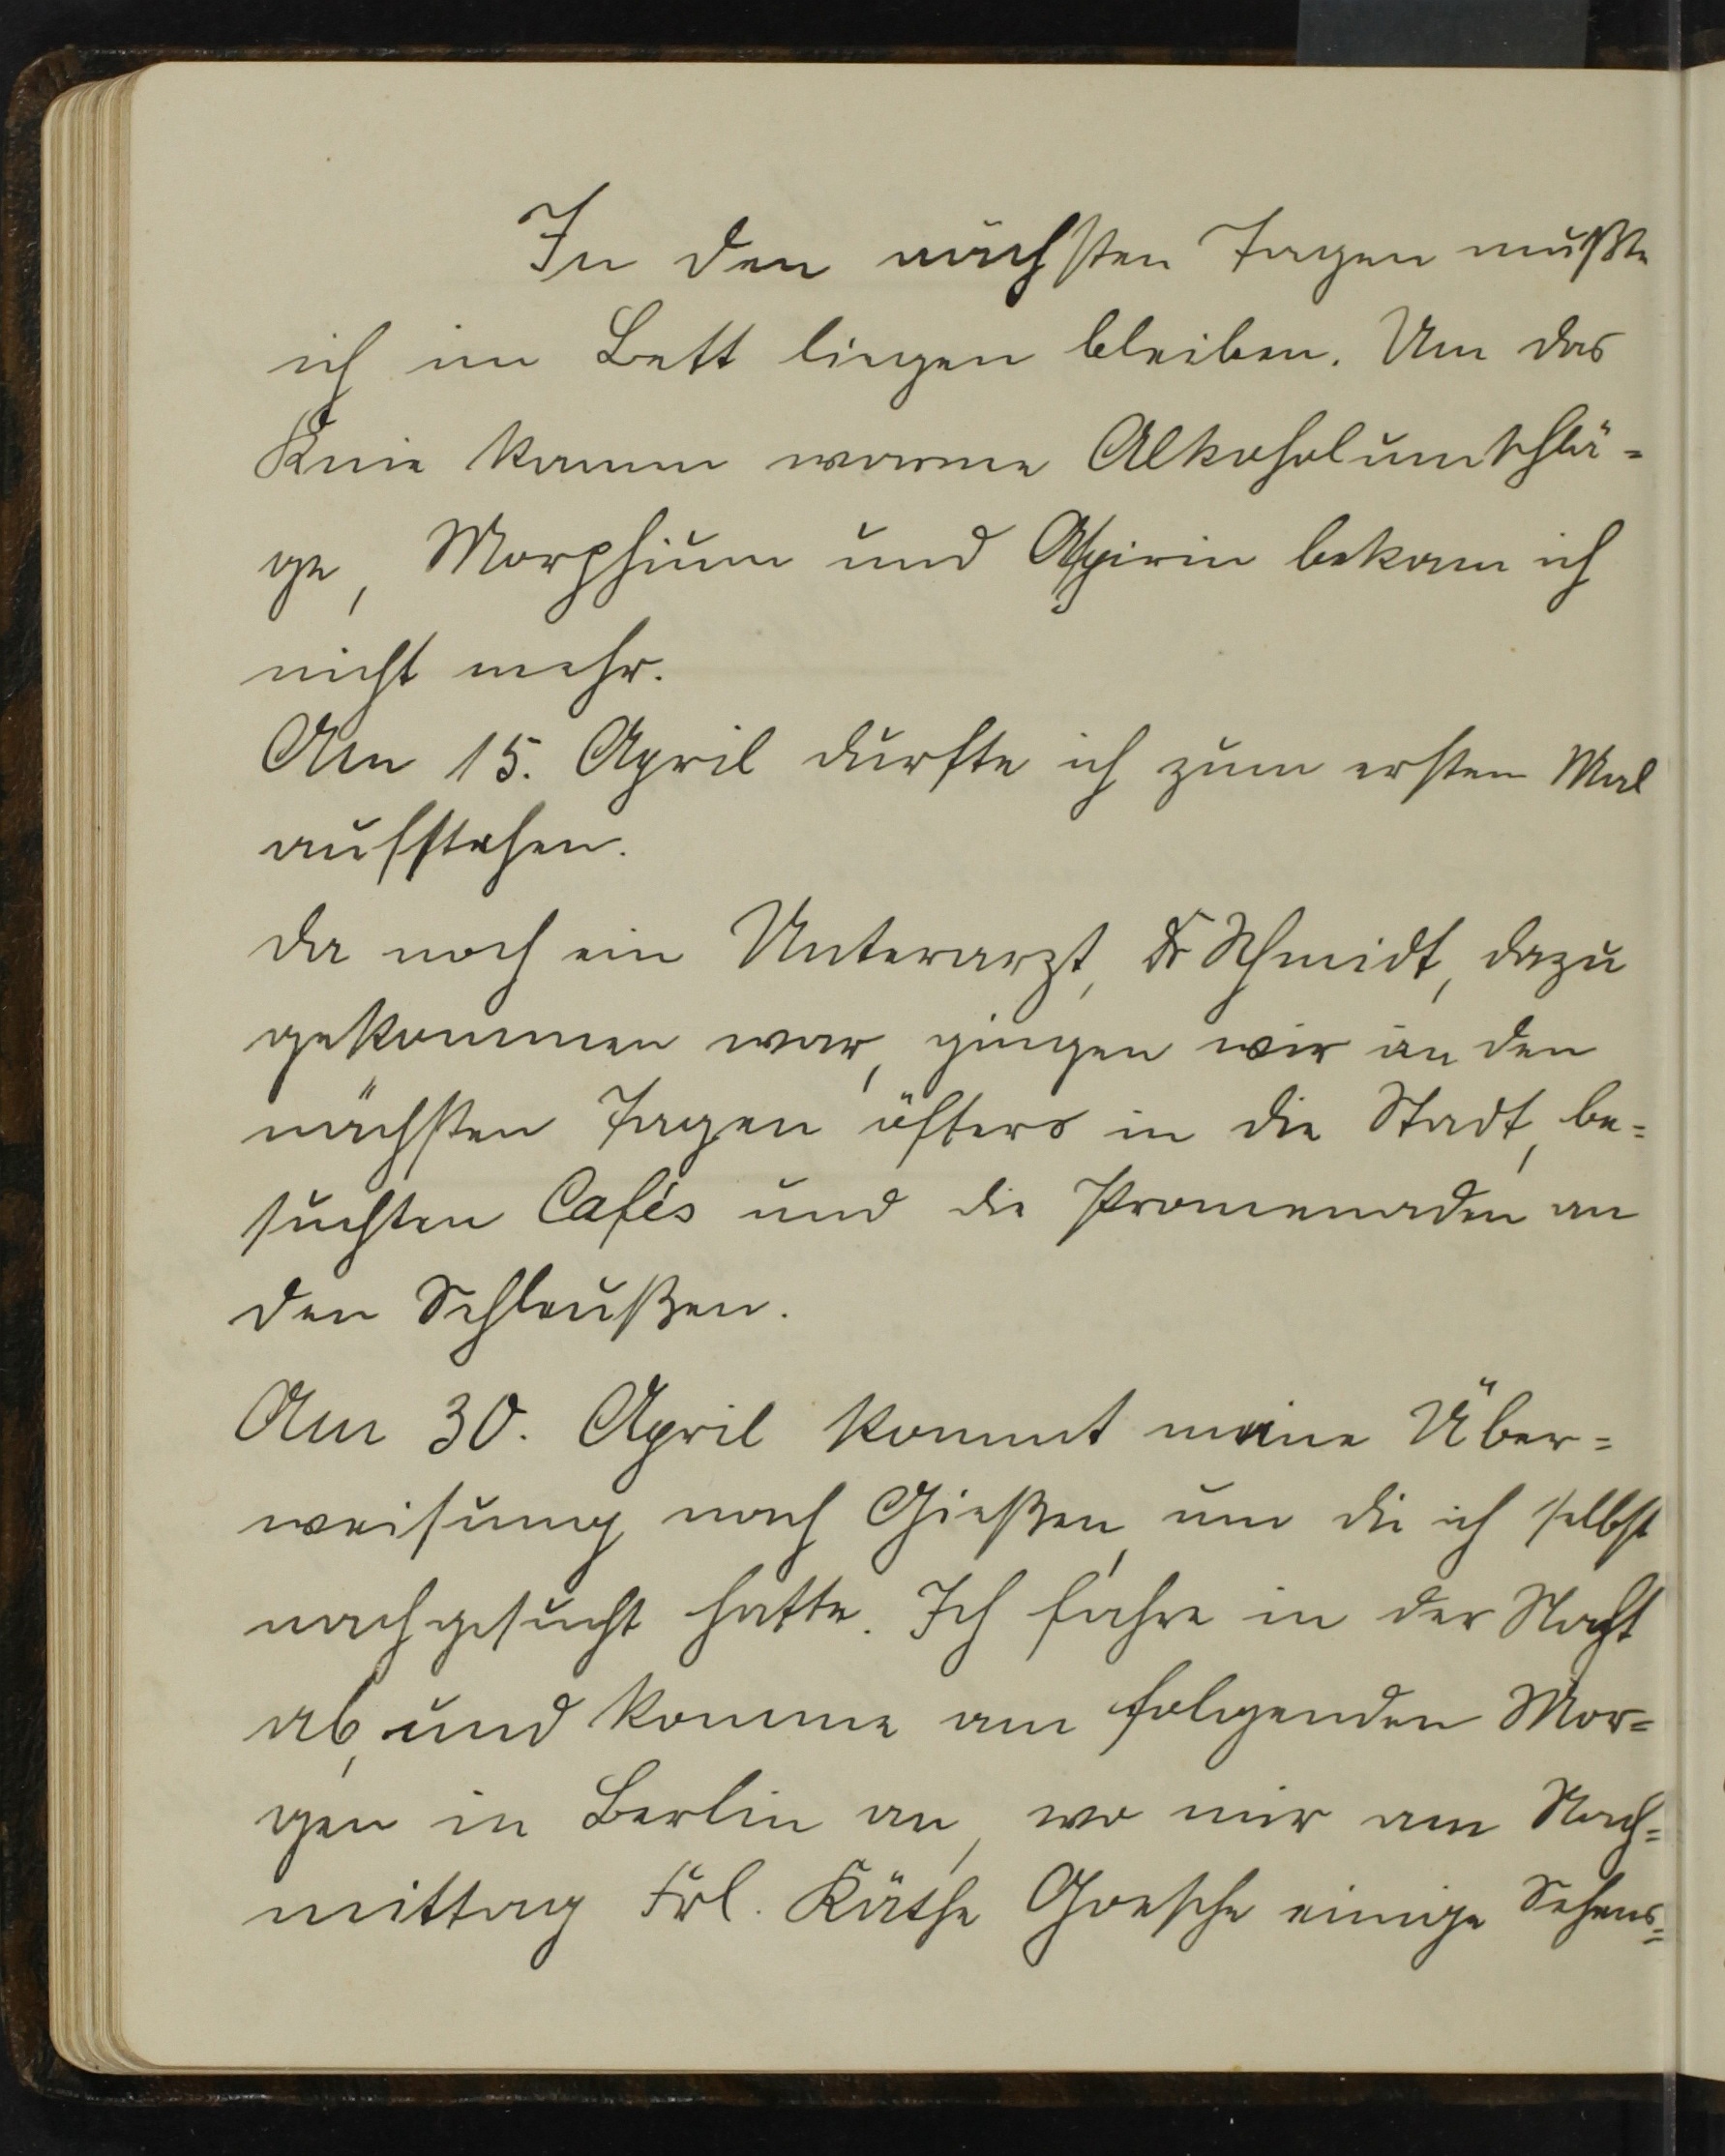 In den nächsten Tagen mußte
ich im Bett liegen bleiben. Um das
Knie kamen warme Alkoholumschlä=
ge, Morphium und Aspirin bekam ich
nicht mehr.
Am 15. April durfte ich zum ersten Mal
aufstehen.
Da noch ein Unterarzt, Dr Schmidt, dazu
gekommen war, gingen wir in den
nächsten Tagen öfters in die Stadt, be=
suchten Cafés und die Promenaden an
den Schleußen.
Am 30. April kommt meine Über=
weisung nach Gießen, um die ich selbst
nachgesucht hatte. Ich fahre in der Nacht
ab, und komme am folgenden Mor=
gen in Berlin an, wo mir am Nach=
mittag Frl. Käthe Goesche einige Sehens=